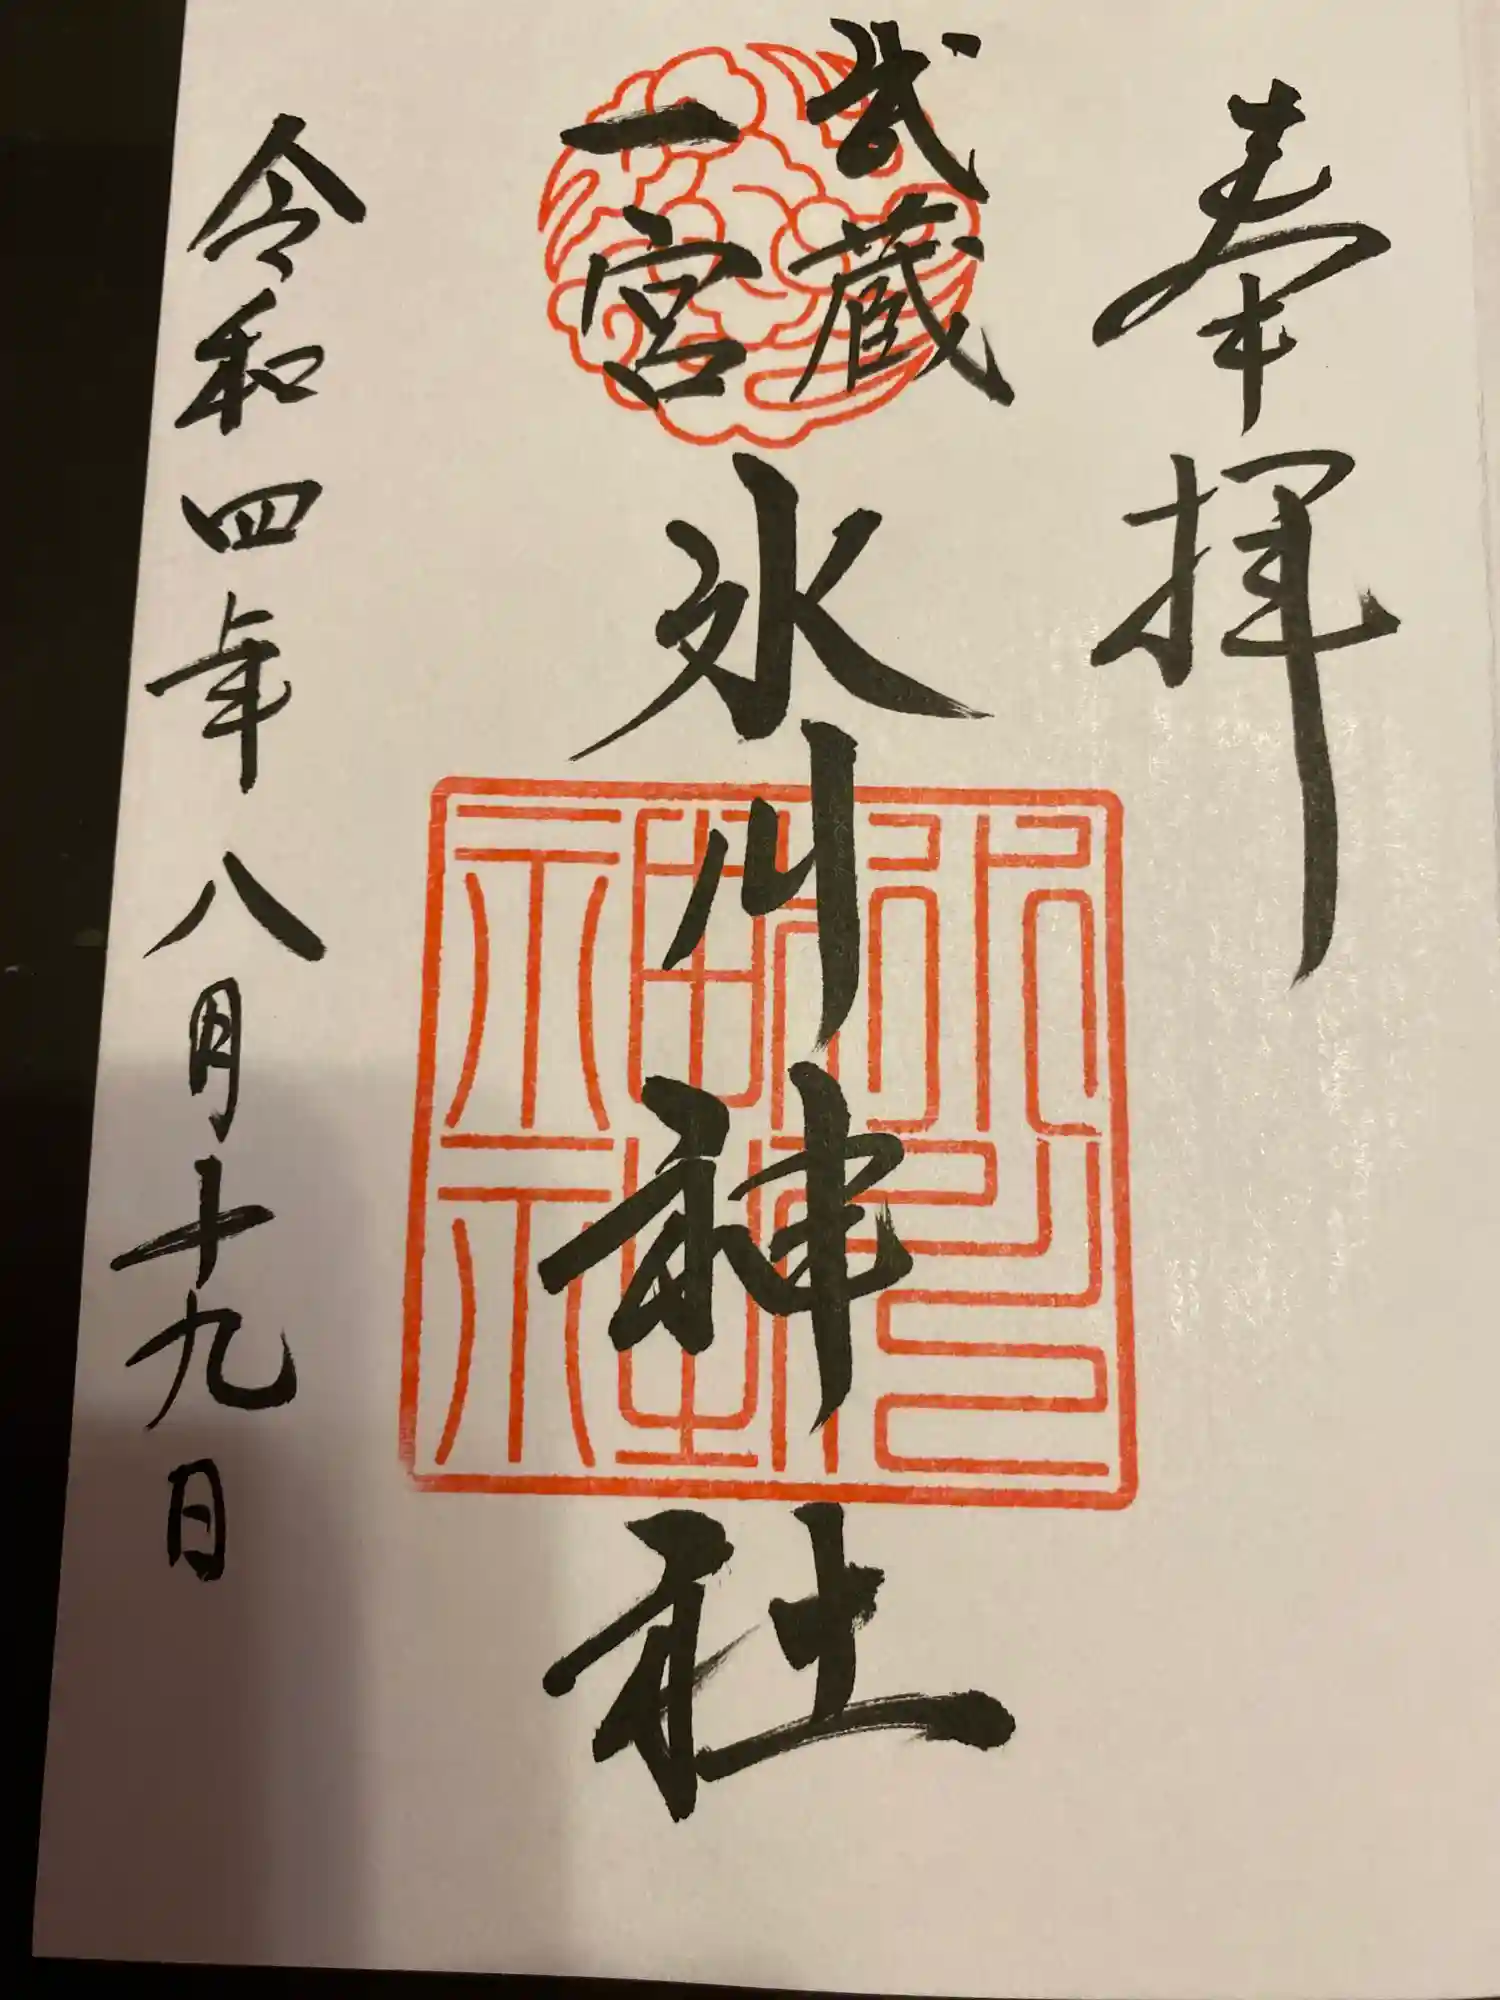 奉拝
武蔵
一宮
氷川神社
令和四年八月十九日